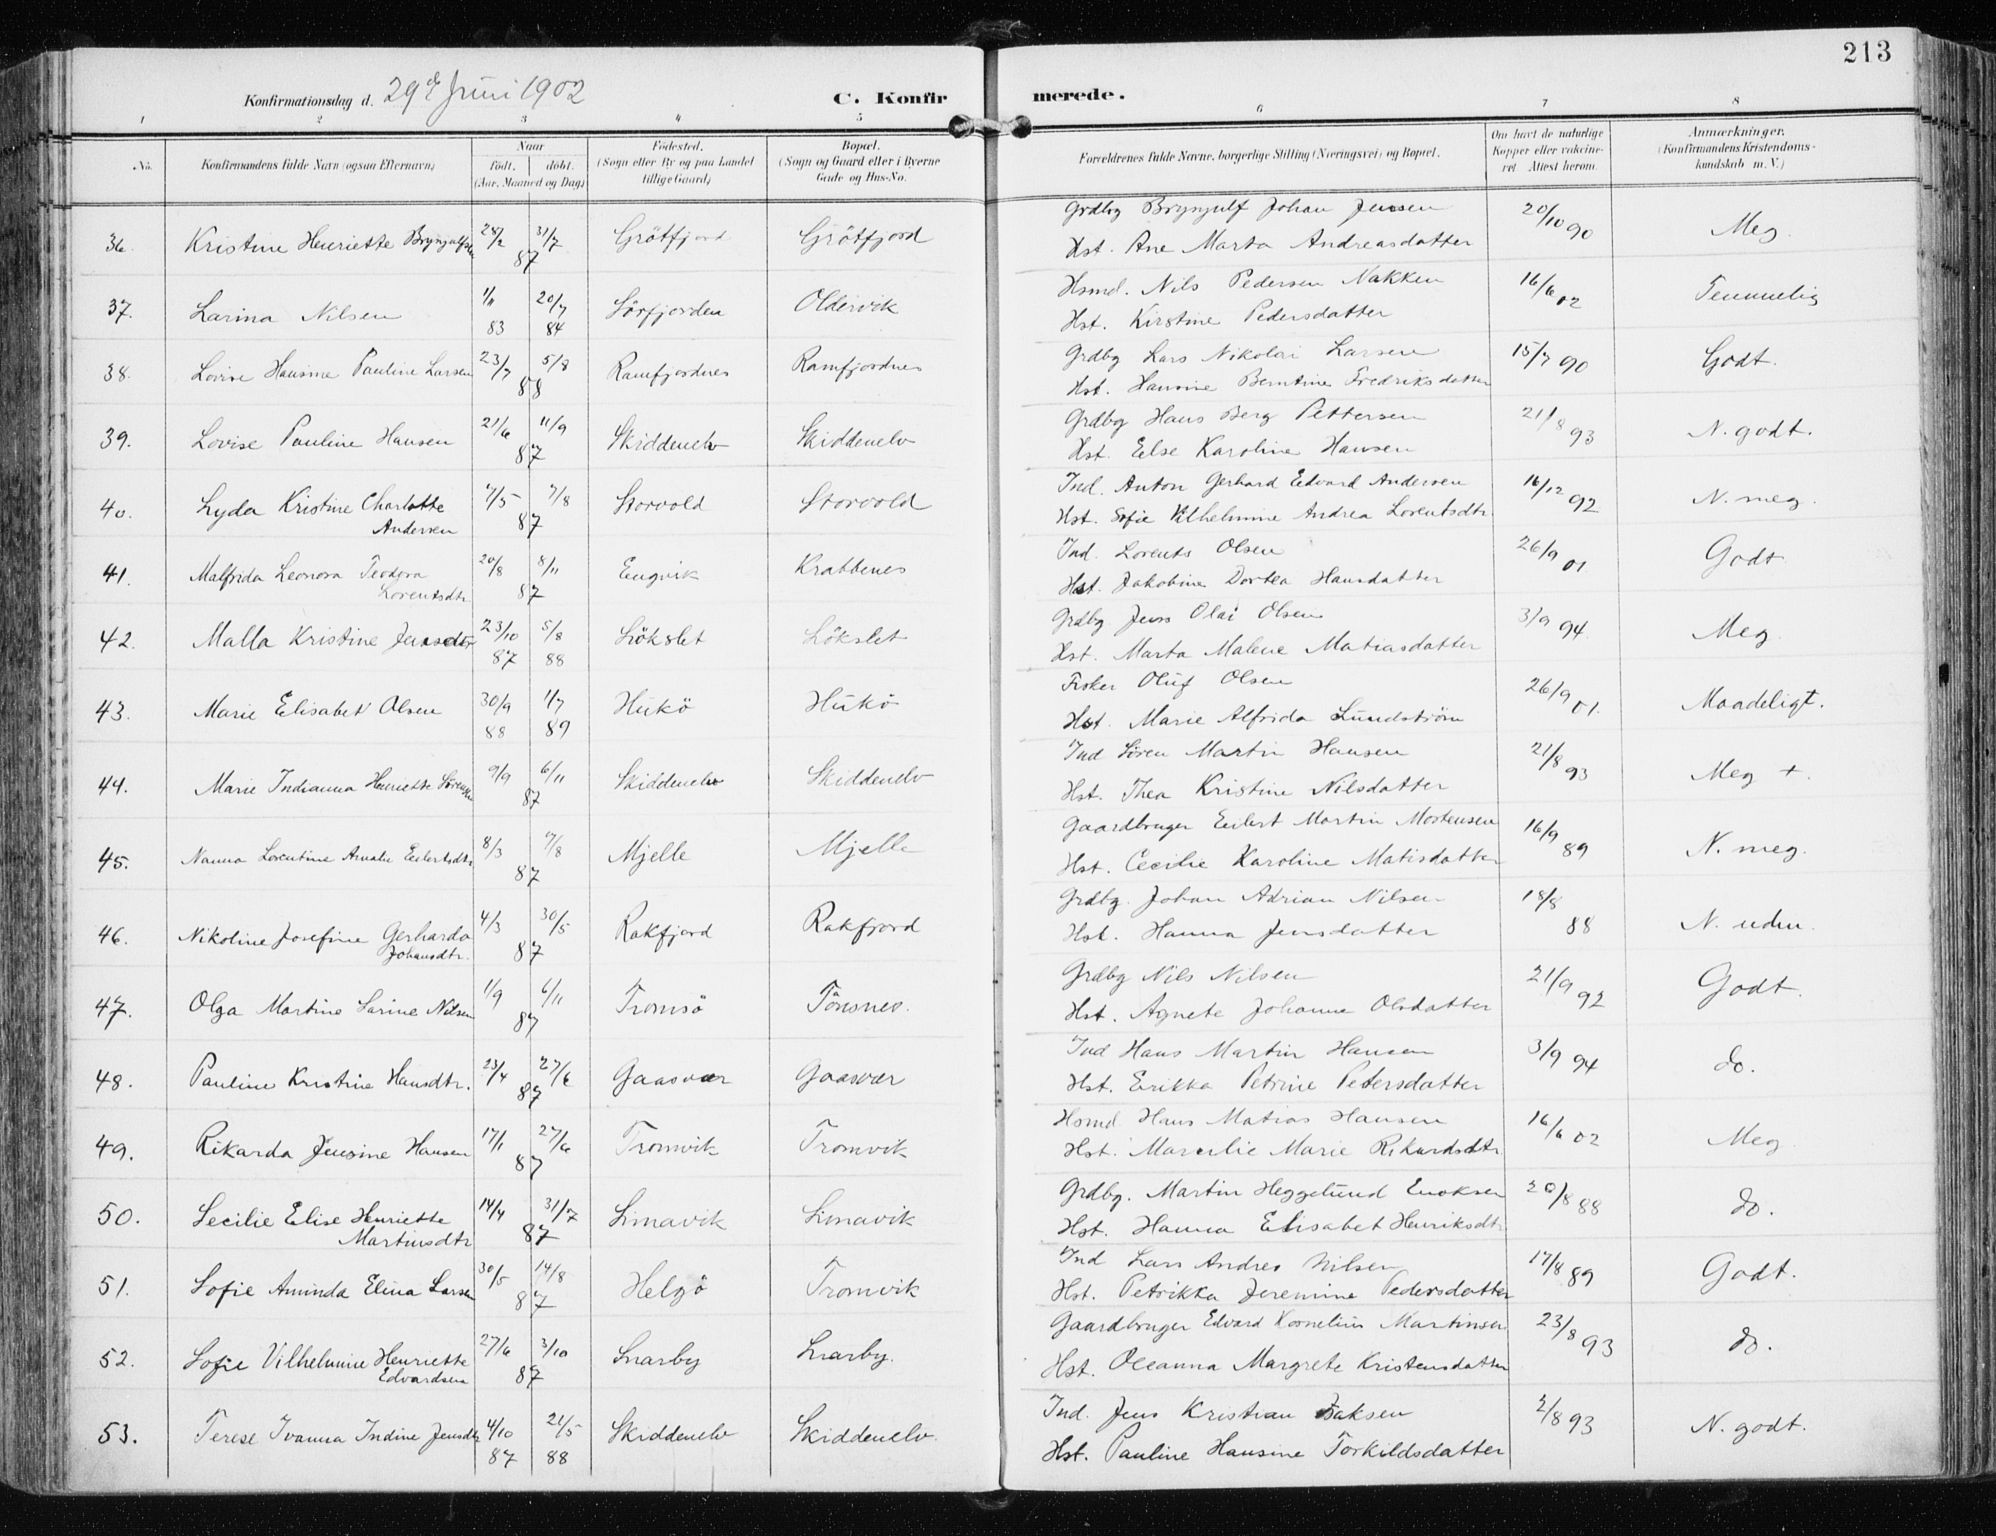 213
Konfirmationsdag d. 29de Juni 1902 C. Konfirmerede.
1 2 3 4 5 6 7 8
No. Konfirmandens fulde Navn (ogsaa Efternavn) Naar født. døbt. (Aar, Maaned og Dag) Fødested. (Sogn eller By og paa Landet tillige Gaard) Bopæl. (Sogn og Gaard eller i Byerne Gade og Hus-No. Forældrenes fulde Navne, borgerlige Stilling (Næringsvei) og Bopæl. Om havt de naturlige Kopper eller vaccineret Attest herom. Anmærkninger. (Konfirmandens Kristendomskundskab m. V.)
36. Kristine Henriette Brynjulfsen 28/2 31/7 87 Grötfjord Grötfjord Grdbg Brynjulf Johan Jensen 20/10 90 Meg.
Hst. Ane Marta Andreasdatter
37. Larina Nilsen 1/11 83 20/7 84 Sörfjorden Oldervik Hsmd. Nils Pedersen Nakken 16/6 02 Temmelig
Hst. Kirstine Pedersdatter
38. Lovise Hansine Pauline Larsen 23/7 5/8 88 Ramfjordnes Ramfjordnes Grdbg Lars Nikolai Larsen 15/7 90 Godt.
Hst. Hansine Berntine Fredriksdatter
39. Lovise Pauline Hansen 21/6 11/9 87 Skiddenelv Skiddenelv Grdbg Hans Berg Pettersen 21/8 93 N. godt.
Hst. Else Karoline Hansen
40. Lyda Kristine Charlotte 7/5 7/8 87 Storvold Storvold Ind. Anton Gerhard Edvard Andersen 16/12 92 N. meg.
Andersen Hst. Sofie Vilhelmine Andrea Lorentsdtr.
41. Malfrida Leonora Teodora 20/8 8/11 87 Engvik Krabbenes Ind. Lorents Olsen 26/9 01 Godt
Lorentsdtr. Hst. Jakobine Dortea Hansdatter
42. Malla Kristine Jensdtr 23/10 87 5/8 88 Lökslet Lökslet Grdbg. Jens Olai Olsen 3/9 94. Meg.
Hst. Marta Malene Matiasdatter
43. Marie Elisabet Olsen 30/9 88 1/7 89 Hükö Hükö Fisker Oluf Olsen 26/9 01. Maadeligt.
Hst. Marie Alfrida Lundström
44. Marie Indianna Henriette Sørensen 9/9 6/11 87 Skiddenelv Skiddenelv Ind Sören Martin Hansen 21/8 93 Meg +.
Hst. Thea Kristine Nilsdatter
45. Nanna Lorentine Amalie Eilertsdtr 8/3 7/8 87 Mjelle Mjelle Gaardbruger Eilert Martin Mortensen 16/9 89 N. meg.
Hst. Cecilie Karoline Matisdatter
46. Nikoline Josefine Gerharda 4/3 30/5 87 Rakfjord Rakfjord Grdbg. Johan Adrian Nilsen 18/8 88 N. udm.
Johansdtr. Hst. Hanna Jensdatter
47. Olga Martine Sarine Nilsen 1/9 6/11 87 Tromsö Tönsnes. Grdbg Nils Nilsen 21/9 92 Godt.
Hst. Agnete Johanne Olsdatter
48. Pauline Kristine Hansdtr. 23/4 27/6 87 Gaasvær Gaasvær Ind Hans Martin Hansen 3/9 94 do.
Hst. Erikka Petrine Pedersdatter
49. Rikarda Jensine Hansen 17/1 27/6 87 Tromvik Tromvik Hsmd Hans Matias Hansen 16/6 02 Meg.
Hst. Marselie Marie Rikardsdtr
50. Secilie Elise Henriette 14/4 31/7 87 Simavik Simavik Grdbg. Martin Heggelund Enoksen 20/8 88 do.
Martinsdtr Hst. Hanna Elisabet Henriksdtr
51. Sofie Aminda Elina Larsen 30/5 14/8 87 Helgö Tromvik Ind Lars Andreas Nilsen 17/8 89 Godt.
Hst. Petrikka Jeremine Pedersdatter
52. Sofie Vilhelmine Henriette 27/6 3/10 87 Snarby Snarby. Gaardbruger Edvard Kornelius Martinsen 23/8 93 do.
Edvardsen Hst. Oleanna Margrete Kristensdatter
53. Terese Ivanna Indine Jensdtr 4/10 87 21/5 88 Skiddenelv Skiddenelv. Ind. Jens Kristian Isaksen 2/8 93 N. godt.
Hst. Pauline Hansine Torkildsdatter